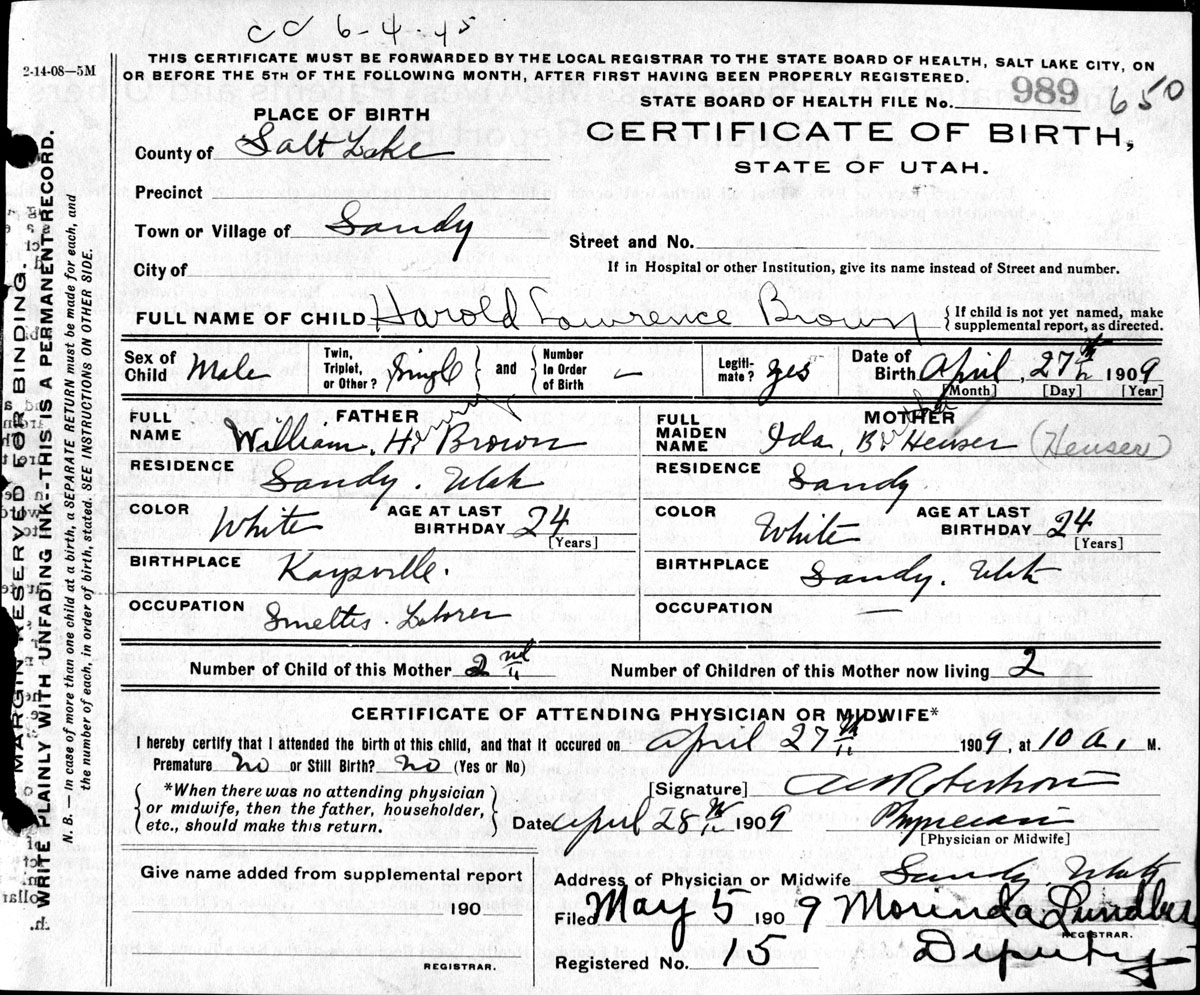 CC 6-4-45
2-14-08—5M
THIS CERTIFICATE MUST BE FORWARDED BY THE LOCAL REGISTRAR TO THE STATE BOARD OF HEALTH, SALT LAKE CITY, ON
OR BEFORE THE 5TH OF THE FOLLOWING MONTH, AFTER FIRST HAVING BEEN PROPERLY REGISTERED.
STATE BOARD OF HEALTH FILE No. 989 650
PLACE OF BIRTH
CERTIFICATE OF BIRTH,
STATE OF UTAH.
County of Salt Lake
Precinct
Town or Village of Sandy
Street and No.
City of
If in Hospital or other Institution, give its name instead of Street and number.
FULL NAME OF CHILD Harold Lawrence Brown { If child is not yet named, make
supplemental report, as directed.
Sex of Child Male Twin, Triplet, or Other? Single } and { Number In Order of Birth — Legitimate? yes Date of Birth April, 27th 1909
[Month] [Day] [Year]
FATHER
FULL NAME William, H. Brown
RESIDENCE Sandy. Utah
COLOR White AGE AT LAST BIRTHDAY 24
[Years]
BIRTHPLACE Kaysville.
OCCUPATION Smelter. Laborer
MOTHER
FULL MAIDEN NAME Ida, B. Heuser (Heuser)
RESIDENCE Sandy
COLOR White AGE AT LAST BIRTHDAY 24
[Years]
BIRTHPLACE Sandy. Utah
OCCUPATION —
Number of Child of this Mother 2nd Number of Children of this Mother now living 2
CERTIFICATE OF ATTENDING PHYSICIAN OR MIDWIFE*
I hereby certify that I attended the birth of this child, and that it occured on April 27th 1909, at 10 a. M.
Premature no or Still Birth? no (Yes or No)
{ *When there was no attending physician
or midwife, then the father, householder,
etc., should make this return. }
[Signature] Robertson
Date April 28th 1909 Physician
[Physician or Midwife]
Give name added from supplemental report
190
REGISTRAR.
Address of Physician or Midwife Sandy Utah
Filed May 5 1909 Morinda Lundberg
REGISTRAR.
Registered No. 15 Deputy
MARGIN RESERVED FOR BINDING.
WRITE PLAINLY WITH UNFADING INK--THIS IS A PERMANENT RECORD.
N. B. — In case of more than one child at a birth, a SEPARATE RETURN must be made for each, and
the number of each, in order of birth, stated. SEE INSTRUCTIONS ON OTHER SIDE.